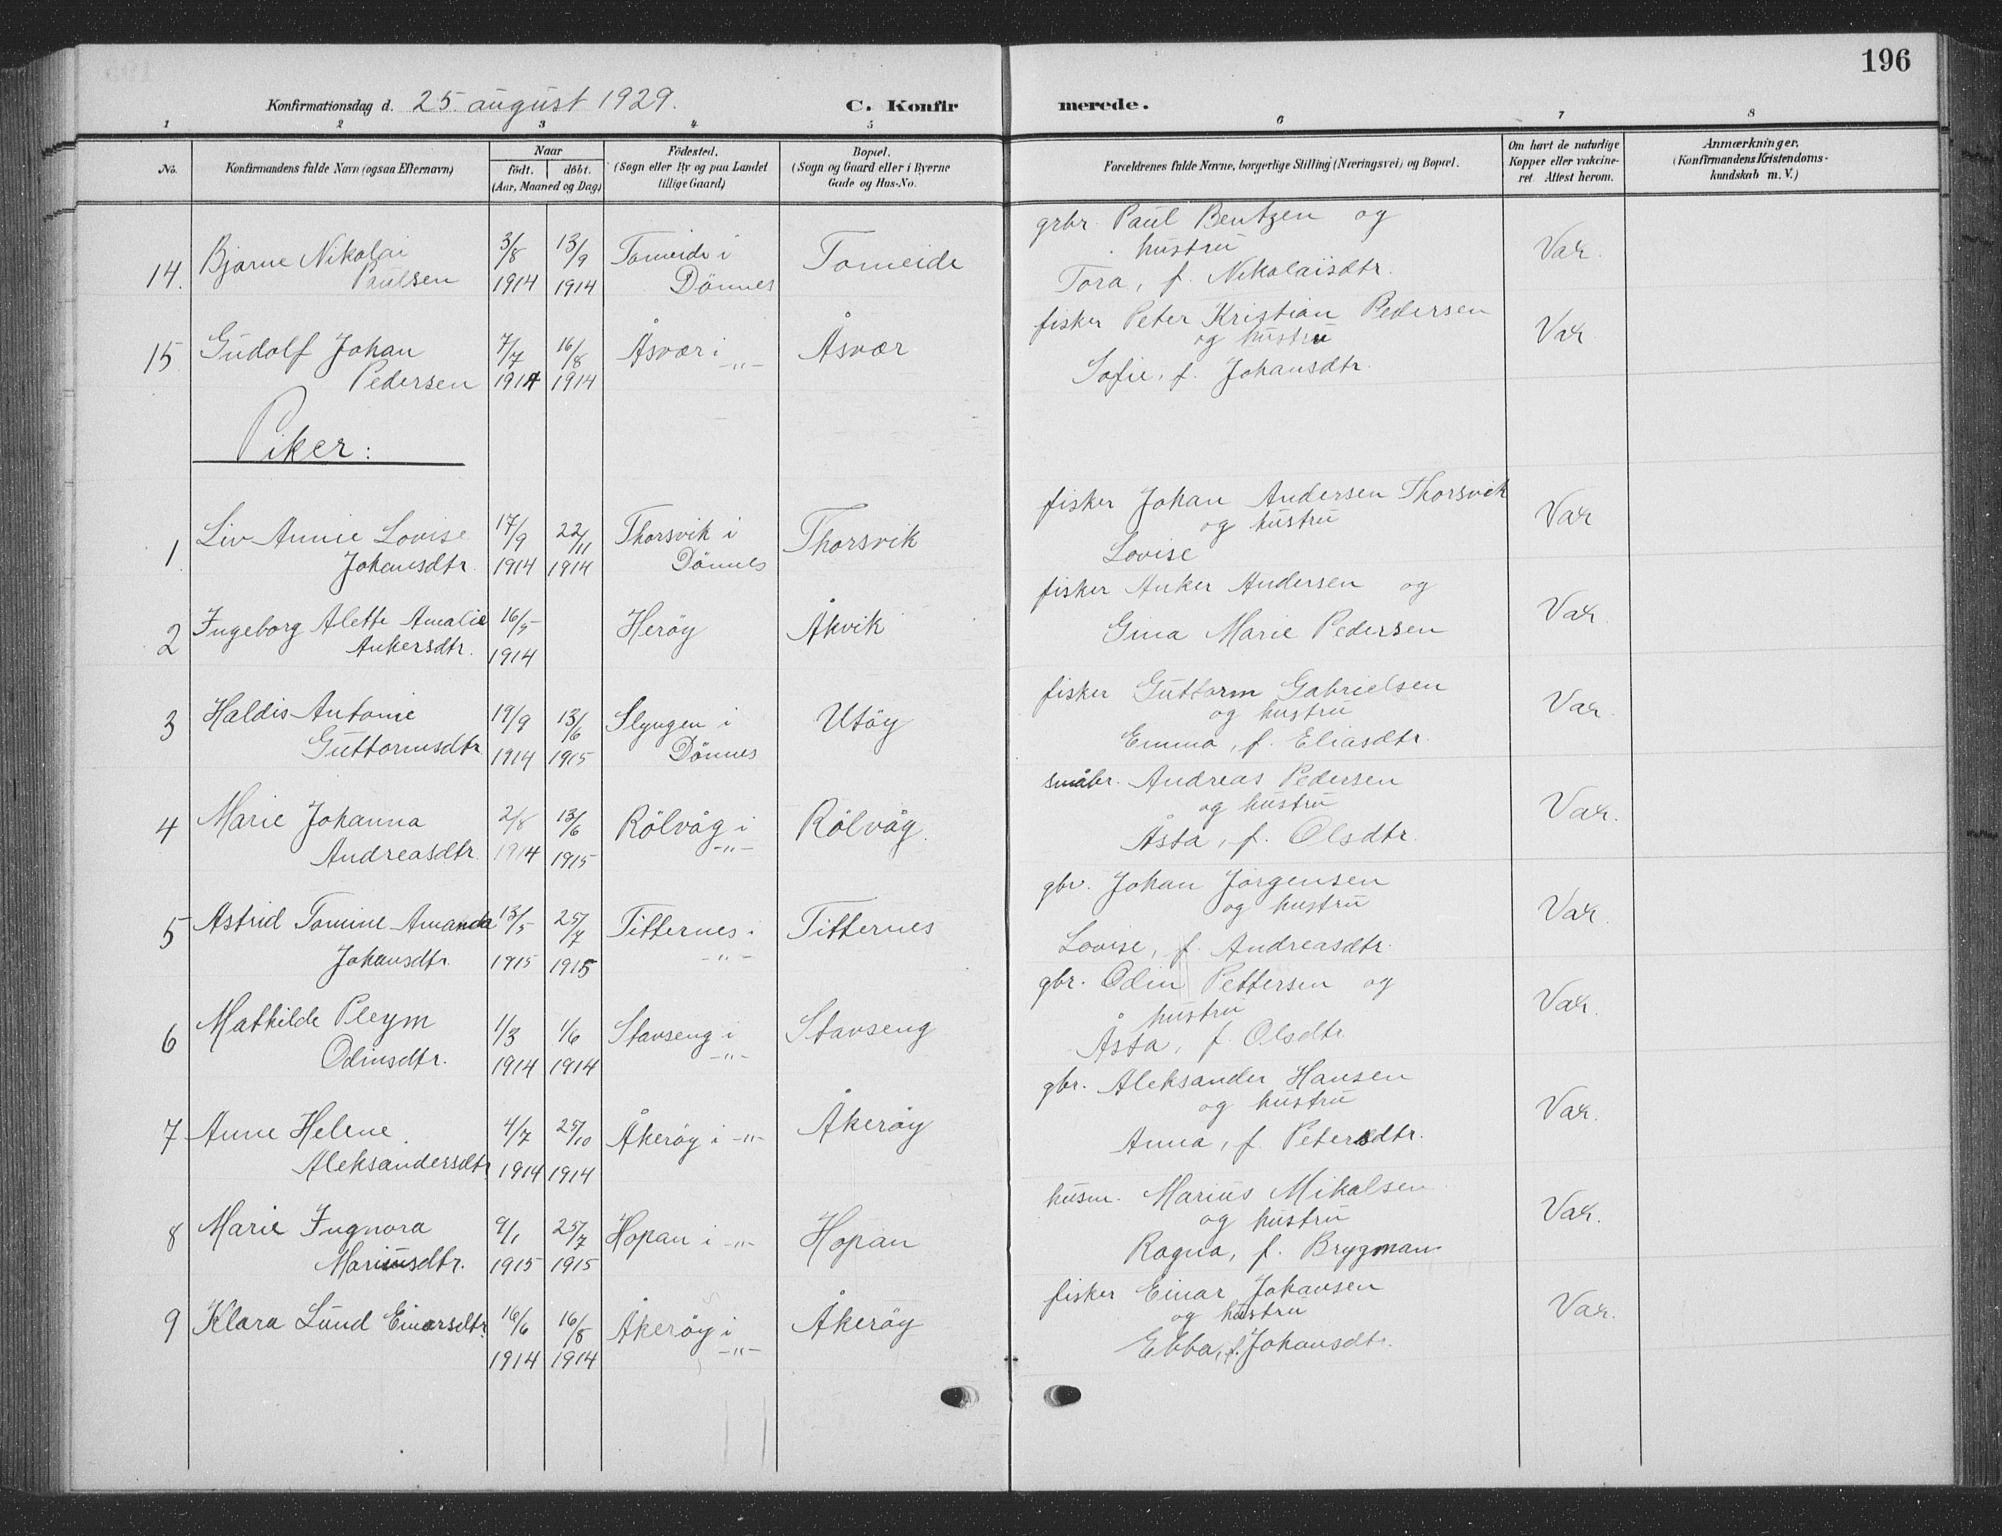 196
Konfirmationsdag d. 25 august 1929.
C. Konfirmerede.
1 2 3 4 5 6 7 8
No.
Konfirmandens fulde Navn (ogsaa Efternavn)
Naar
født. døbt.
(Aar, Maaned og Dag)
Fødested.
(Sogn eller By og paa Landet
tillige Gaard)
Bopæl.
(Sogn og Gaard eller i Byerne
Gade og Hus-No.
Forældrenes fulde Navne, borgerlige Stilling (Næringsvei) og Bopæl.
Om havt de naturlige
Kopper eller vakcine-
ret. Attest herom.
Anmærkninger.
(Konfirmandens Kristendoms-
kundskab m. V.)
14. Bjarne Nikolai
Paulsen
3/8 1914
13/9 1914
Tomeide i
Dönnes
Tomeide
grbr. Paul Bentzen og
hustru
Tora, f. Nikolaisdtr.
Var.
15 Gudolf Johan
Pedersen
7/7 1914
16/8 1914
Åsvær i
-"-
Åsvær
fisker Peter Kristian Pedersen
og hustru
Sofie, f. Johansdtr.
Var
Piker:
1. Liv Annie Lovise
Johansdtr.
17/9 1914
22/11 1914
Thorsvik i
Dönnes
Thorsvik
fisker Johan Andersen Thorsvik
og hustru
Lovise
Var
2 Ingeborg Alette Amalie
Ankersdtr.
16/5 1914
Heröy
Åkvik
fisker Anker Andersen og
Gina Marie Pedersen
Var.
3 Haldis Antonie
Guttormsdtr
19/9 1914
13/6 1915
Slyngen i
Dönnes
Utöy
fisker Guttorm Gabrielsen
og hustru
Emma, f. Eliasdtr.
Var.
4 Marie Johanna
Andreasdtr.
2/8 1914
13/6 1915
Rölvåg i
-"-
Rölvåg.
småbr. Andreas Pedersen
og hustru
Åsta, f. Olsdtr.
Var.
5 Astrid Tomine Amanda
Johansdtr.
13/5 1915
25/7 1915
Titternes i
-"-
Titternes
gbr. Johan Jörgensen
og hustru
Lovise, f. Andreasdtr.
Var.
6 Mathilde Pleym
Odinsdtr.
1/3 1914
1/6 1914
Stavseng i
-"-
Stavseng
gbr. Odin Pettersen og
hustru
Åsta, f. Olsdtr.
Var.
7 Anne Helene
Aleksandersdtr
4/7 1914
25/10 1914
Åkeröy i -"-
Åkeröy
gbr. Aleksander Hansen
og hustru
Anna, f. Petersdtr.
Var.
8 Marie Ingnora
Mariusdtr.
9/1 1915
25/7 1915
Hopan i -"-
Hopan
husm. Marius Mikalsen
og hustru
Ragna, f. Brygman
Var.
9 Klara Lund Einarsdtr
16/6 1914
16/8 1914
Åkeröy i
-"-
Åkeröy
fisker Einar Johansen
og hustru
Ebba, f. Johansdt.
Var.